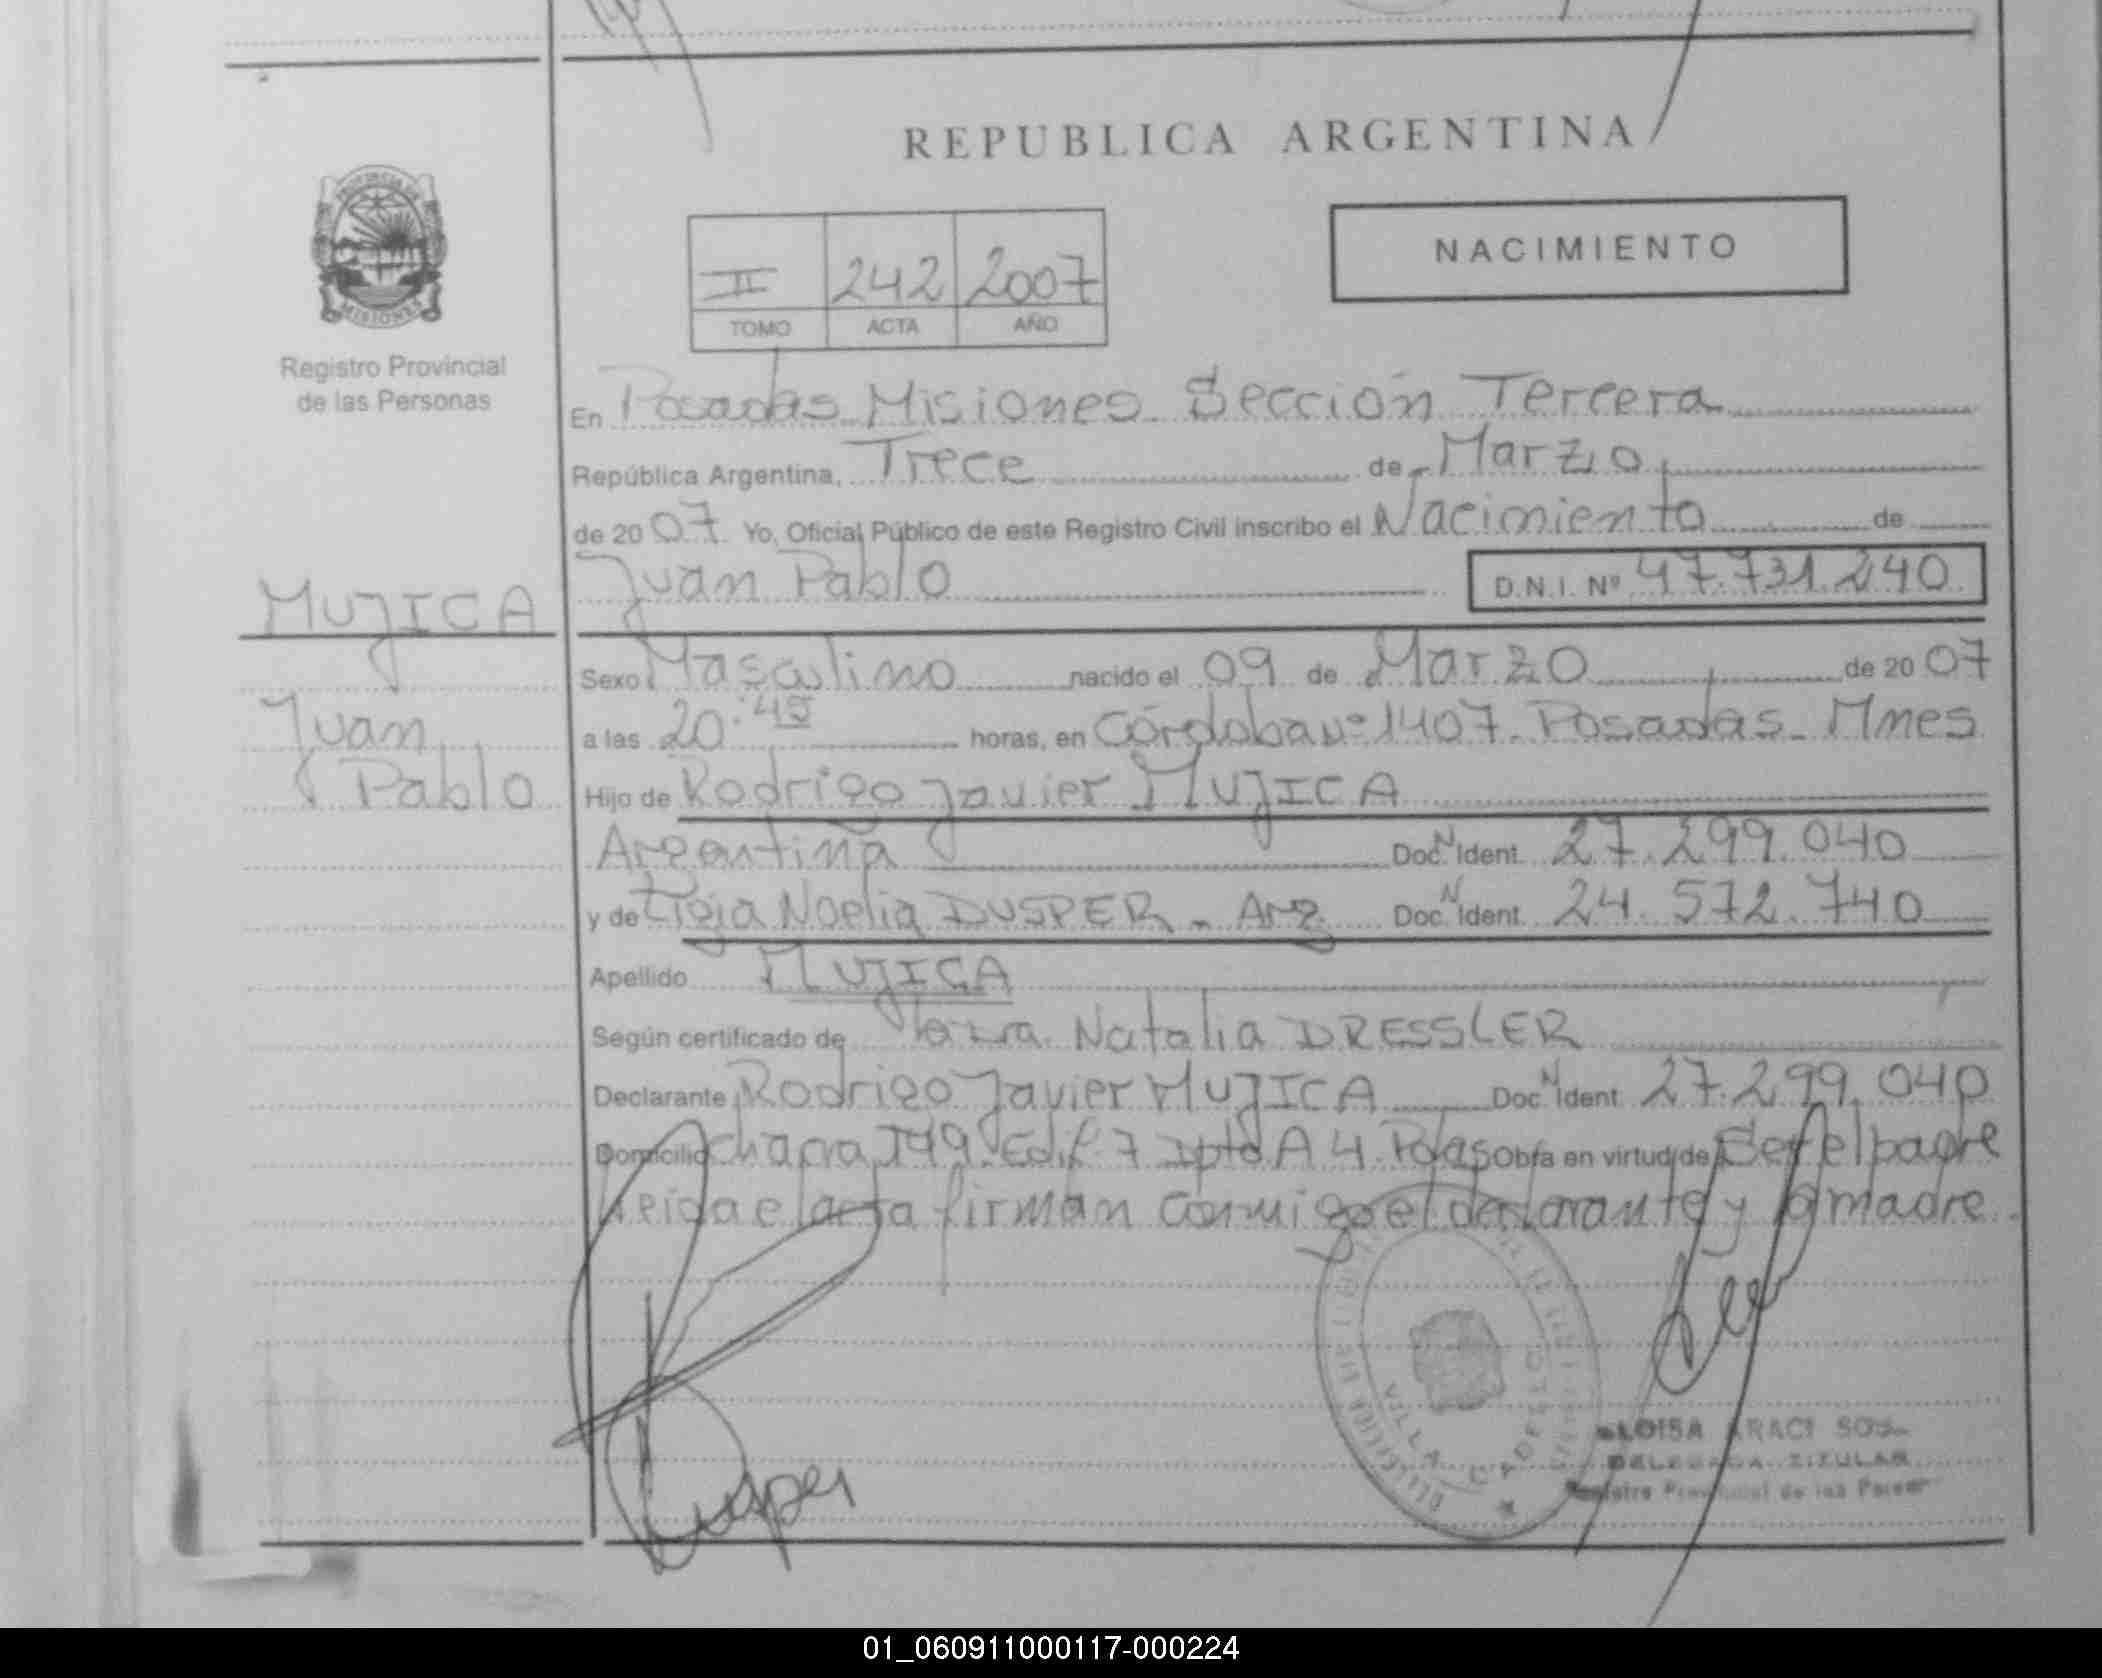 REPUBLICA ARGENTINA
PROVINCIA DE
MISIONES
Registro Provincial
de las Personas
II 242 2007
TOMO ACTA AÑO
NACIMIENTO
En Posadas Misiones Sección Tercera
República Argentina, Trece de Marzo
de 2007 Yo, Oficial Público de este Registro Civil inscribo el Nacimiento de
Juan Pablo D.N.I. Nº 47.731.240
MUJICA
Juan
Pablo
Sexo Masculino nacido el 09 de Marzo de 2007
a las 20:45 horas, en Córdoba nº 1407 - Posadas - Mnes
Hijo de Rodrigo Javier MUJICA
Argentina Doc. N Ident. 27.299.040
y de Ligia Noelia DUSPER - Arg. Doc. N Ident. 24.572.740
Apellido MUJICA
Según certificado de Natalia DRESSLER
Declarante Rodrigo Javier MUJICA Doc. N Ident. 27.299.040
Domicilio Chacra 149 Edif. 7 Dpto A 4 Pdas Obra en virtud de Ser el padre
Leida el acta firman conmigo el declarante y la madre.
Dusper
VILLA CABELLO
ARACI
DELEGADA TITULAR
Registro Provincial de las
01_060911000117-000224